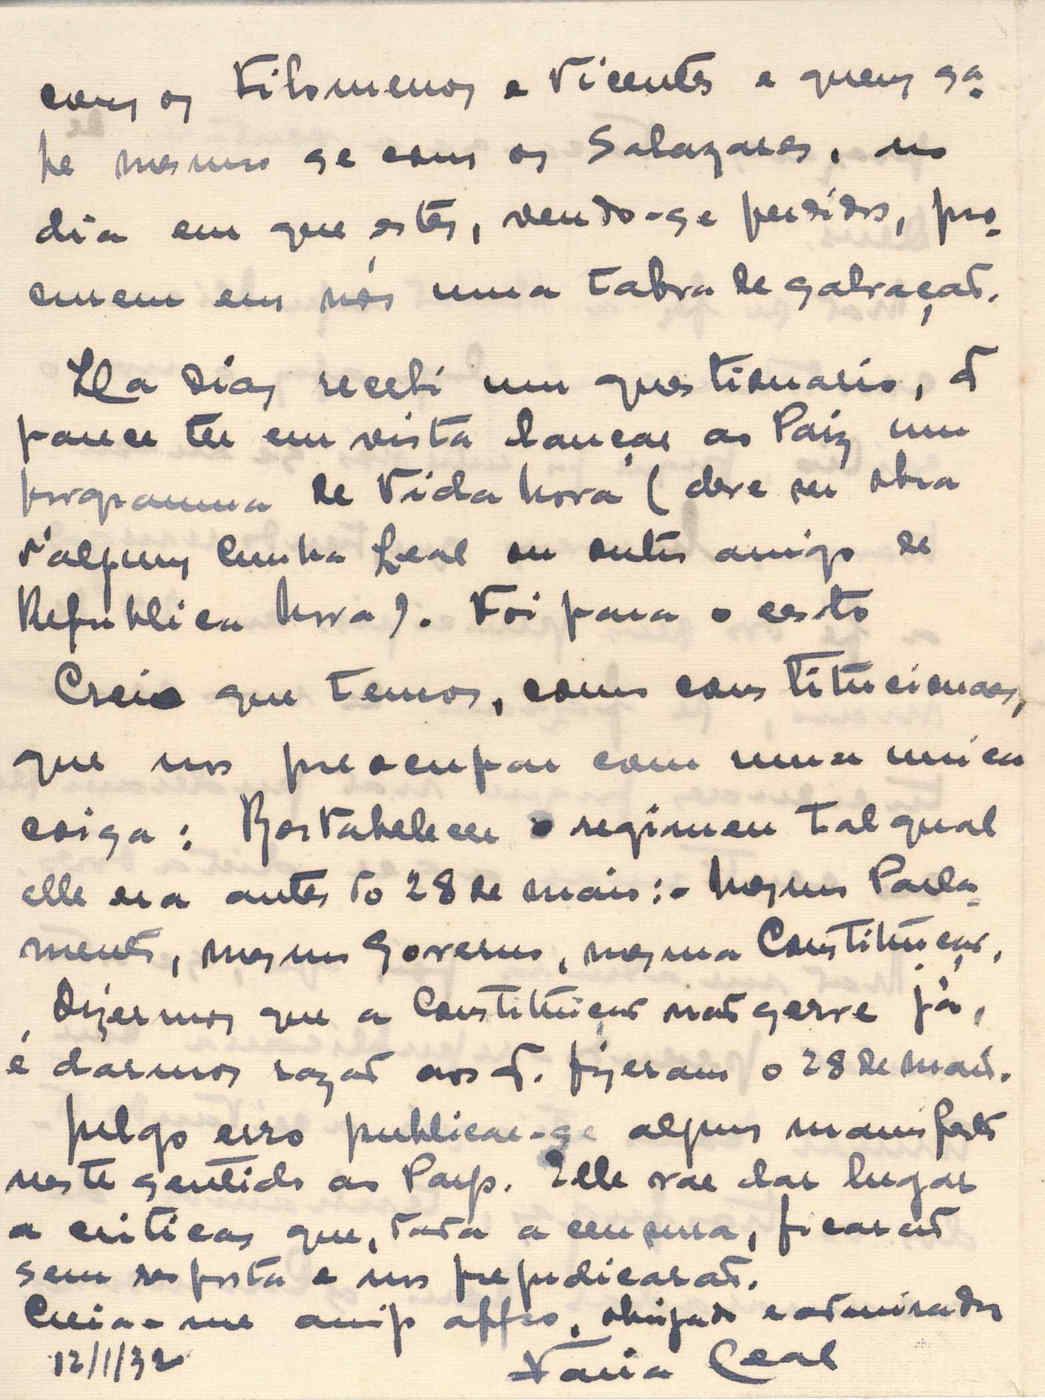 com os Filomenos e Vicentes e quem sa-
be mesmo se com os Salazares, no
dia em que estes, vendo-se perdidos, pro-
curem em nós uma taboa de salvaçaõ.
Ha dias recebi um questionario, q̃
parece ter em vista lançar ao Paiz um
programma de Vida Nova (deve ser obra
d'algum Cunha Leal ou outro amigo da
Republica Nova). Foi para o cesto
Creio que temos, como constitucionaes,
que nos preocupar com uma unica
coisa: Restabelecer o regimen tal qual
elle era antes do 28 de maio:- Mesmo Parla-
mento, mesmo Governo, mesma Constituiçaõ.
Dizermos que a Constituiçaõ naõ serve já,
é darmos razaõ aos q̃. fizeram o 28 de maio.
Julgo erro publicar-se algum manifesto
neste sentido ao Paiz. Elle vae dar lugar
a criticas que, dada a censura, ficaraõ
sem resposta e nos prejudicaraõ.
Creia-me amigo affço, obrigado e admirador
12/1/32 Faria Leal